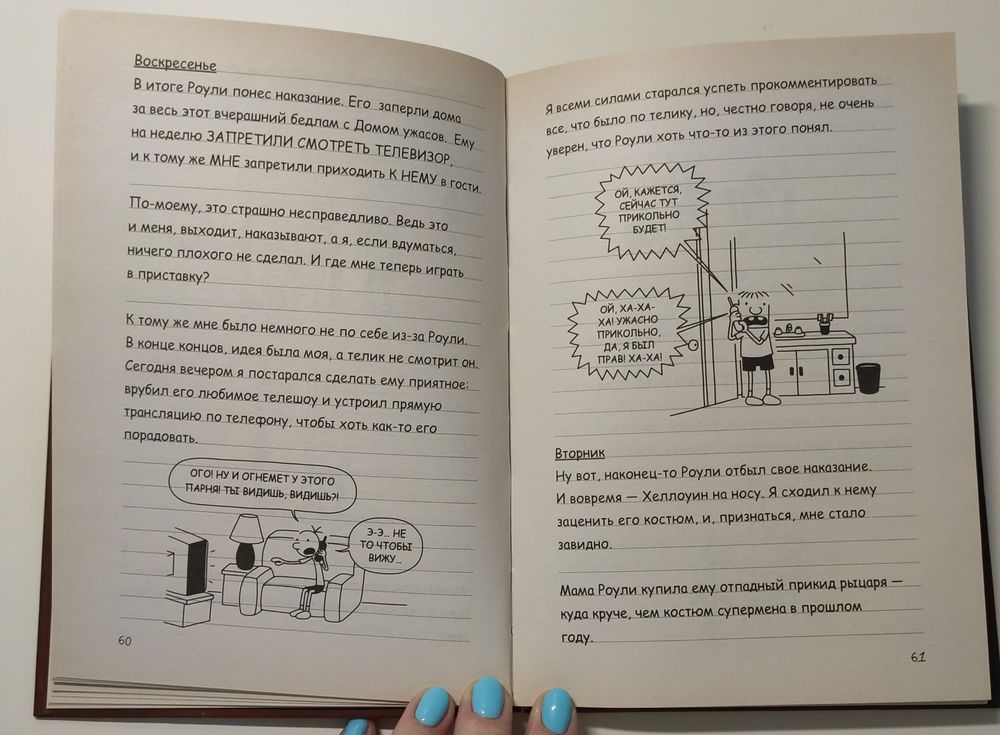 Воскресенье
В итоге Роули понес наказание. Его заперли дома
за весь этот вчерашний бедлам с Домом ужасов. Ему
на неделю ЗАПРЕТИЛИ СМОТРЕТЬ ТЕЛЕВИЗОР,
и к тому же МНЕ запретили приходить К НЕМУ в гости.
По-моему, это страшно несправедливо. Ведь это
и меня, выходит, наказывают, а я, если вдуматься,
ничего плохого не сделал. И где мне теперь играть
в приставку?
К тому же мне было немного не по себе из-за Роули.
В конце концов, идея была моя, а телик не смотрит он.
Сегодня вечером я постарался сделать ему приятное:
врубил его любимое телешоу и устроил прямую
трансляцию по телефону, чтобы хоть как-то его
порадовать.
ОГО! НУ И ОГНЕМЕТ У ЭТОГО
ПАРНЯ! ТЫ ВИДИШЬ, ВИДИШЬ?!
Э-Э... НЕ
ТО ЧТОБЫ
ВИЖУ...
60
Я всеми силами старался успеть прокомментировать
все, что было по телику, но, честно говоря, не очень
уверен, что Роули хоть что-то из этого понял.
ОЙ, КАЖЕТСЯ,
СЕЙЧАС ТУТ
ПРИКОЛЬНО
БУДЕТ!
ОЙ, ХА-ХА-
ХА! УЖАСНО
ПРИКОЛЬНО,
ДА, Я БЫЛ
ПРАВ! ХА-ХА!
Вторник
Ну вот, наконец-то Роули отбыл свое наказание.
И вовремя — Хеллоуин на носу. Я сходил к нему
заценить его костюм, и, признаться, мне стало
завидно.
Мама Роули купила ему отпадный прикид рыцаря —
куда круче, чем костюм супермена в прошлом
году.
61